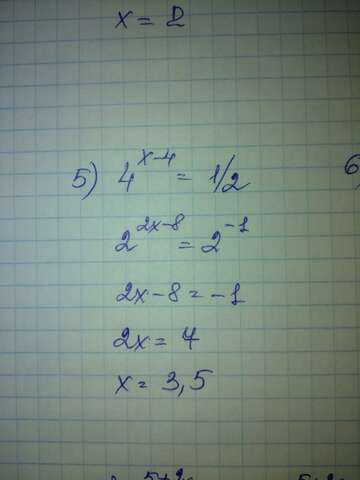 x = 2
5) 4^{x-4} = 1/2
6
2^{2x-8} = 2^{-1}
2x-8 = -1
2x = 7
x = 3,5